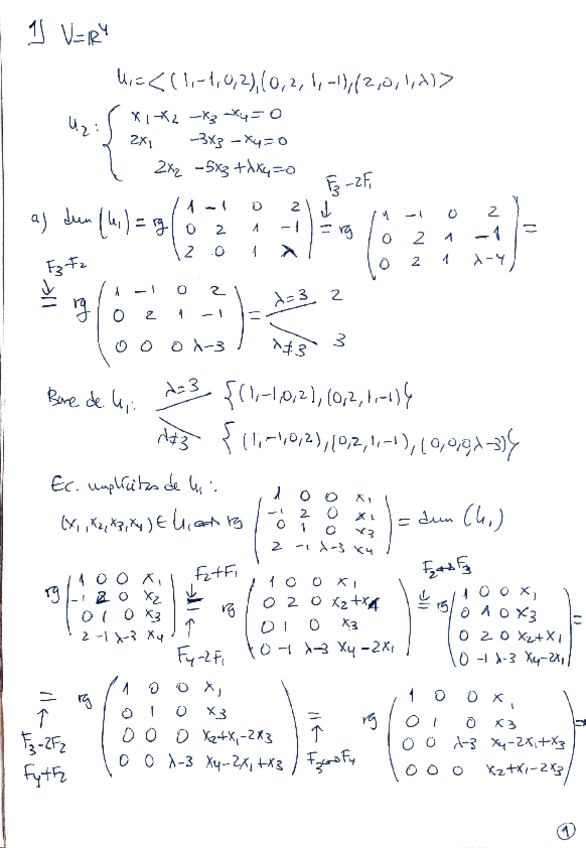 1) V=ℝ⁴
U₁=<(1,-1,0,2),(0,2,1,-1),(2,0,1,λ)>
U₂: { x₁-x₂ -x₃-x₄=0
2x₁ -3x₃-x₄=0
2x₂ -5x₃+λx₄=0
F₃-2F₁
a) dim(U₁) = rg (1 -1 0 2; 0 2 1 -1; 2 0 1 λ) = rg (1 -1 0 2; 0 2 1 -1; 0 2 1 λ-4) =
F₃-F₂
= rg (1 -1 0 2; 0 2 1 -1; 0 0 0 λ-3) = λ=3 2
λ≠3 3
Base de U₁: λ=3 {(1,-1,0,2),(0,2,1,-1)}
λ≠3 {(1,-1,0,2),(0,2,1,-1),(0,0,0,λ-3)}
Ec. implícitas de U₁:
(x₁,x₂,x₃,x₄) ∈ U₁ ⟺ rg (1 0 0 x₁; -1 2 0 x₂; 0 1 0 x₃; 2 -1 λ-3 x₄) = dim (U₁)
rg (1 0 0 x₁; -1 2 0 x₂; 0 1 0 x₃; 2 -1 λ-3 x₄) = F₂+F₁ F₄-2F₁ rg (1 0 0 x₁; 0 2 0 x₂+x₁; 0 1 0 x₃; 0 -1 λ-3 x₄-2x₁) = F₂↔F₃ rg (1 0 0 x₁; 0 1 0 x₃; 0 2 0 x₂+x₁; 0 -1 λ-3 x₄-2x₁) =
= F₃-2F₂ F₄+F₂ rg (1 0 0 x₁; 0 1 0 x₃; 0 0 0 x₂+x₁-2x₃; 0 0 λ-3 x₄-2x₁+x₃) = F₃↔F₄ rg (1 0 0 x₁; 0 1 0 x₃; 0 0 λ-3 x₄-2x₁+x₃; 0 0 0 x₂+x₁-2x₃) =
1